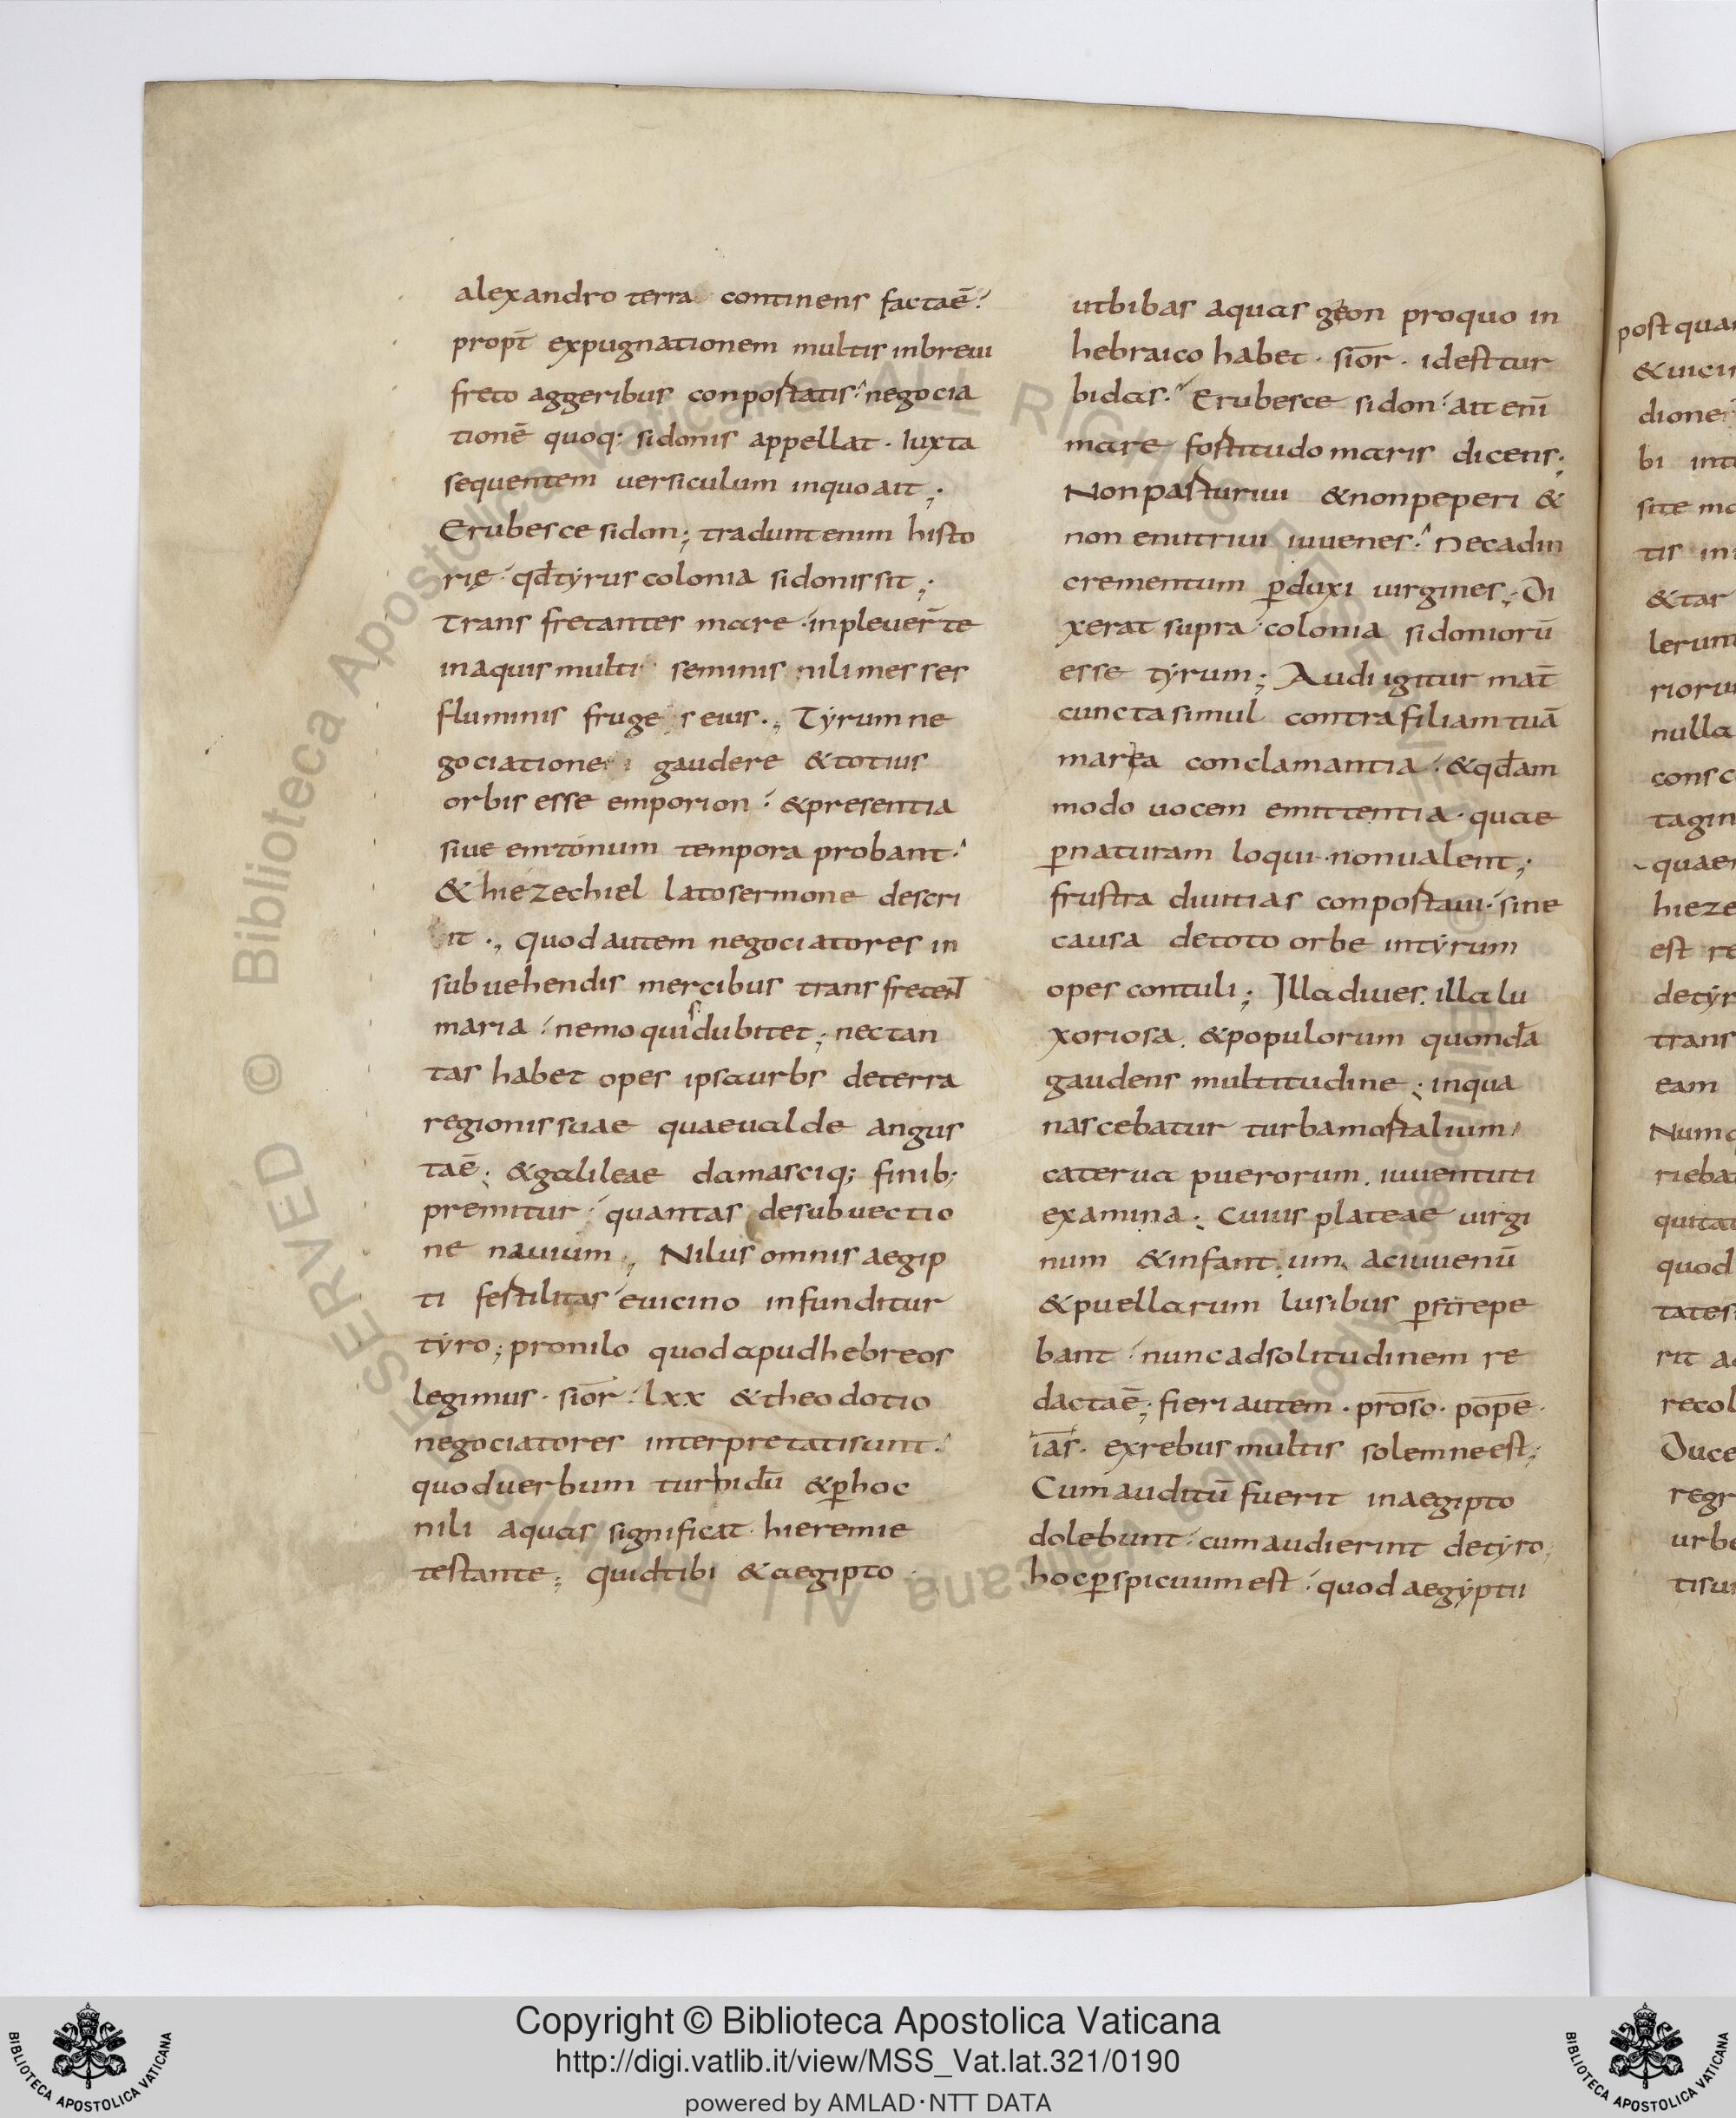 alexandro terra continens factaē
propt̄ expugnationem multis inbreui
freto aggeribus conportatis negocia
tionē quoq: sidonis appellat · Iuxta
sequentem uersiculum inquoait ;
Erubesce sidon ; tradunt enim histo
rię qđ tyrus colonia sidonis sit ;
Trans fretantes mare inpleuer̄ te
inaquis multi seminis nili messes
fluminis fruge s eius ., Tyrum ne
gociatione gaudere & totius
orbis esse emporion & presentia
siue tempora probant
& hiezechiel lato sermone descri
it ., quod autem negociatores in
subuehendis mercibus trans
maria nemo quisdubitet ; nec tan
tas habet opes ipsa urbs de terra
regionis suae quae ualde angus
taē ; & galileae damasciq; finib;
premitur quantas desubuectio
ne nauium ., Nilus omnis aegip
ti fertilitas euicino infunditur
tyro ; pronilo quod apud hebreos
legimus · sīor lxx & theodotio
negociatores interpretati sunt
quod uerbum turbidū & ꝑhoc
nili aquas significat hieremie
testante ; quid tibi & aegipto ·
ut bibas aquas geon proquo in
hebraico habet · sīor · id est tur
bidas Erubesce sidon ait enī
mare fortitudo maris dicens ;
Non parturiui & non peperi &
non enutriui iuuenes nec adin
crementum ꝑduxi uirgines ; Di
xerat supra colonia sidoniorū
esse tyrum ; Audi igitur mat̄
cuncta simul contra filiam tuā
maria conclamantia & qđam
modo uocem emittentia · quae
ꝑnaturam loqui · non ualent ;
frustra diuitias conportaui · sine
causa de toto orbe in tyrum
opes contuli ; Illa diues . illa lu
xoriosa . & populorum quondā
gaudens multitudine ; in qua
nascebatur turba mortalium
caterua puerorum . iuuentuti
examina ; cuius plateae uirgi
num & infant um ac iuuenū
& puellarum lusibus ꝑstrepe
bant nunc ad solitudinem re
dactaē ; fieri autem · prōso · pōpe ·
īas · exrebus multis solemne est ;
Cum auditū fuerit in aegipto
dolebunt cum audierint de tyro ;
hoc ꝑspicuum est quod aegyptii
post qua
& uici
dione
bi int
site mo
tis in
& tar
lerun
rioru
nulla
cons c
tagin
quae
hieze
est re
de tyr
trans
eam
Num
rieba
quita
quod
tates
rit a
recol
Duce
regr
urbe
tisu
© Biblioteca Apostolica Vaticana ALL RIGHTS RESERVED
Copyright © Biblioteca Apostolica Vaticana
http://digi.vatlib.it/view/MSS_Vat.lat.321/0190
powered by AMLAD·NTT DATA
BIBLIOTECA APOSTOLICA VATICANA
BIBLIOTECA APOSTOLICA VATICANA